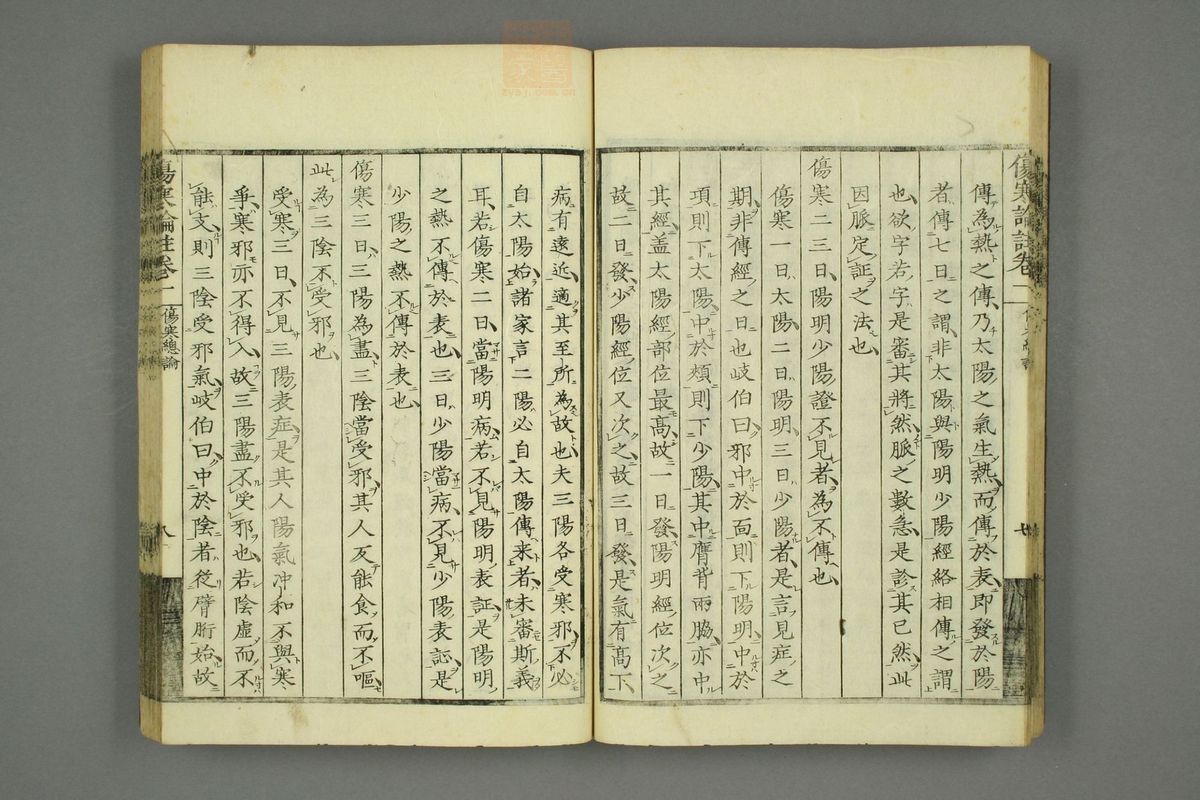 傷寒論註卷一
七
傳為熱之傳乃太陽之氣生熱而傳於表即發於陽
者傳七日之謂非太陽與陽明少陽經絡相傳之謂
也欲字若字是審其將然脈之數急是診其已然此
因脈定証之法也
傷寒二三日陽明少陽證不見者為不傳也
傷寒一日太陽二日陽明三日少陽者是言見症之
期非傳經之日也岐伯曰邪中於面則下陽明中於
項則下太陽中於頰則下少陽其中膺背兩脇亦中
其經蓋太陽經部位最高故一日發陽明經位次之
故二日發少陽經位又次之故三日發是氣有高下
病有遠近適其至所為故也夫三陽各受寒邪不必
自太陽始諸家言二陽必自太陽傳來者未審斯義
耳若傷寒二日當陽明病若不見陽明表証是陽明
之熱不傳於表也三日少陽當病不見少陽表証是
少陽之熱不傳於表也
傷寒三日三陽為盡三陰當受邪其人反能食而不嘔
此為三陰不受邪也
受寒三日不見三陽表症是其人陽氣冲和不與寒
爭寒邪亦不得入故三陽盡不受邪也若陰虛而不
能支則三陰受邪氣岐伯曰中於陰者從臂胻始故
傷寒論註卷一
傷寒總論
八